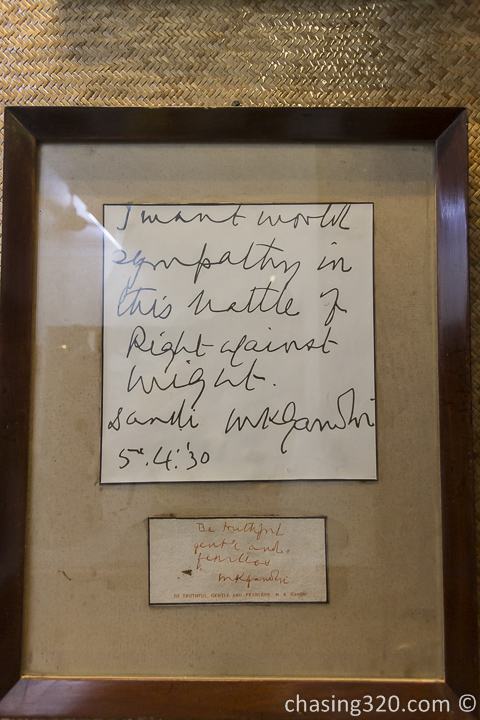 I want world
sympathy in
this battle of
Right against
might.
Dandi MKGandhi
5.4.'30
Be truthful
gentle and
fearless
MKGandhi
BE TRUTHFUL, GENTLE AND FEARLESS M. K. GANDHI
chasing320.com ©